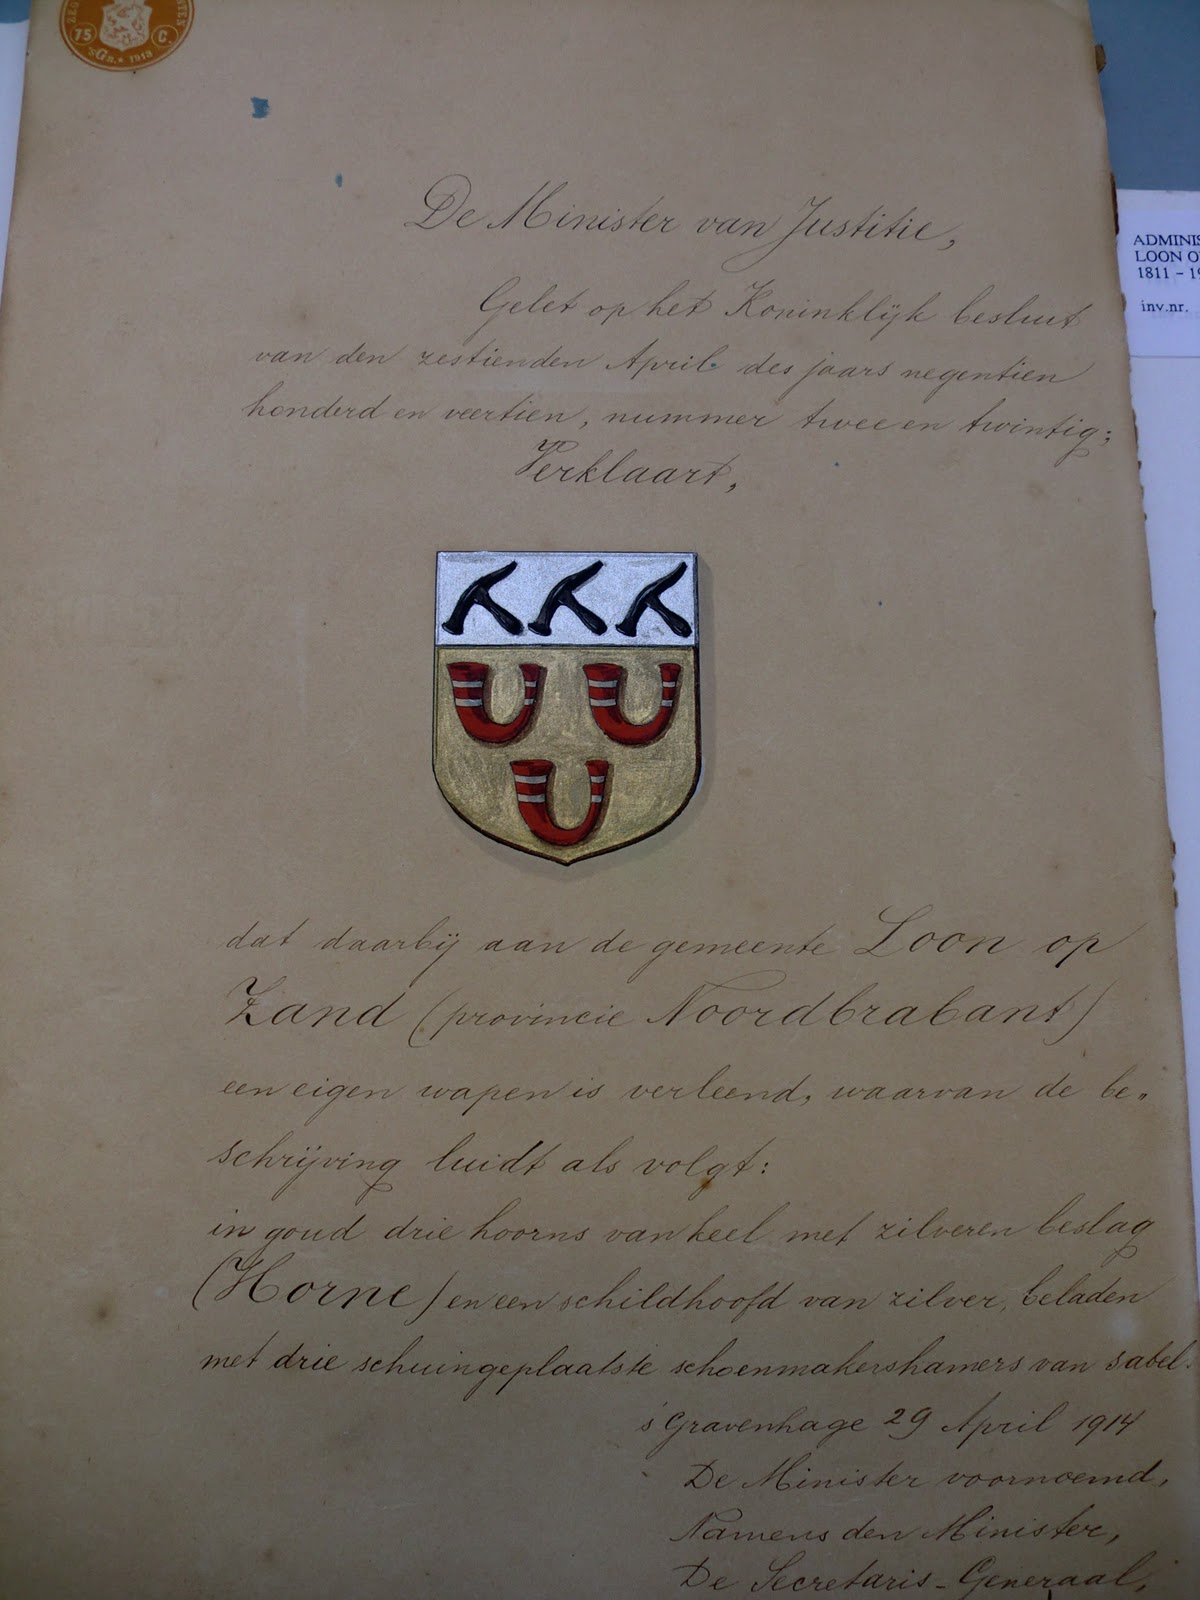 75 C.
'sGr. * 1913
De Minister van Justitie,
Gelet op het Koninklijk besluit
van den zestienden April des jaars negentien
honderd en veertien, nummer twee en twintig;
Verklaart,
dat daarbij aan de gemeente Loon op
Zand (provincie Noordbrabant)
een eigen wapen is verleend, waarvan de be„
schrijving luidt als volgt:
in goud drie hoorns van keel met zilveren beslag
(Horne) en een schildhoofd van zilver, beladen
met drie schuingeplaatste schoenmakershamers van sabel.
's Gravenhage 29 April 1914
De Minister voornoemd,
Namens den Minister,
De Secretaris-Generaal,
ADMINIS
LOON O
1811 - 19
inv.nr.